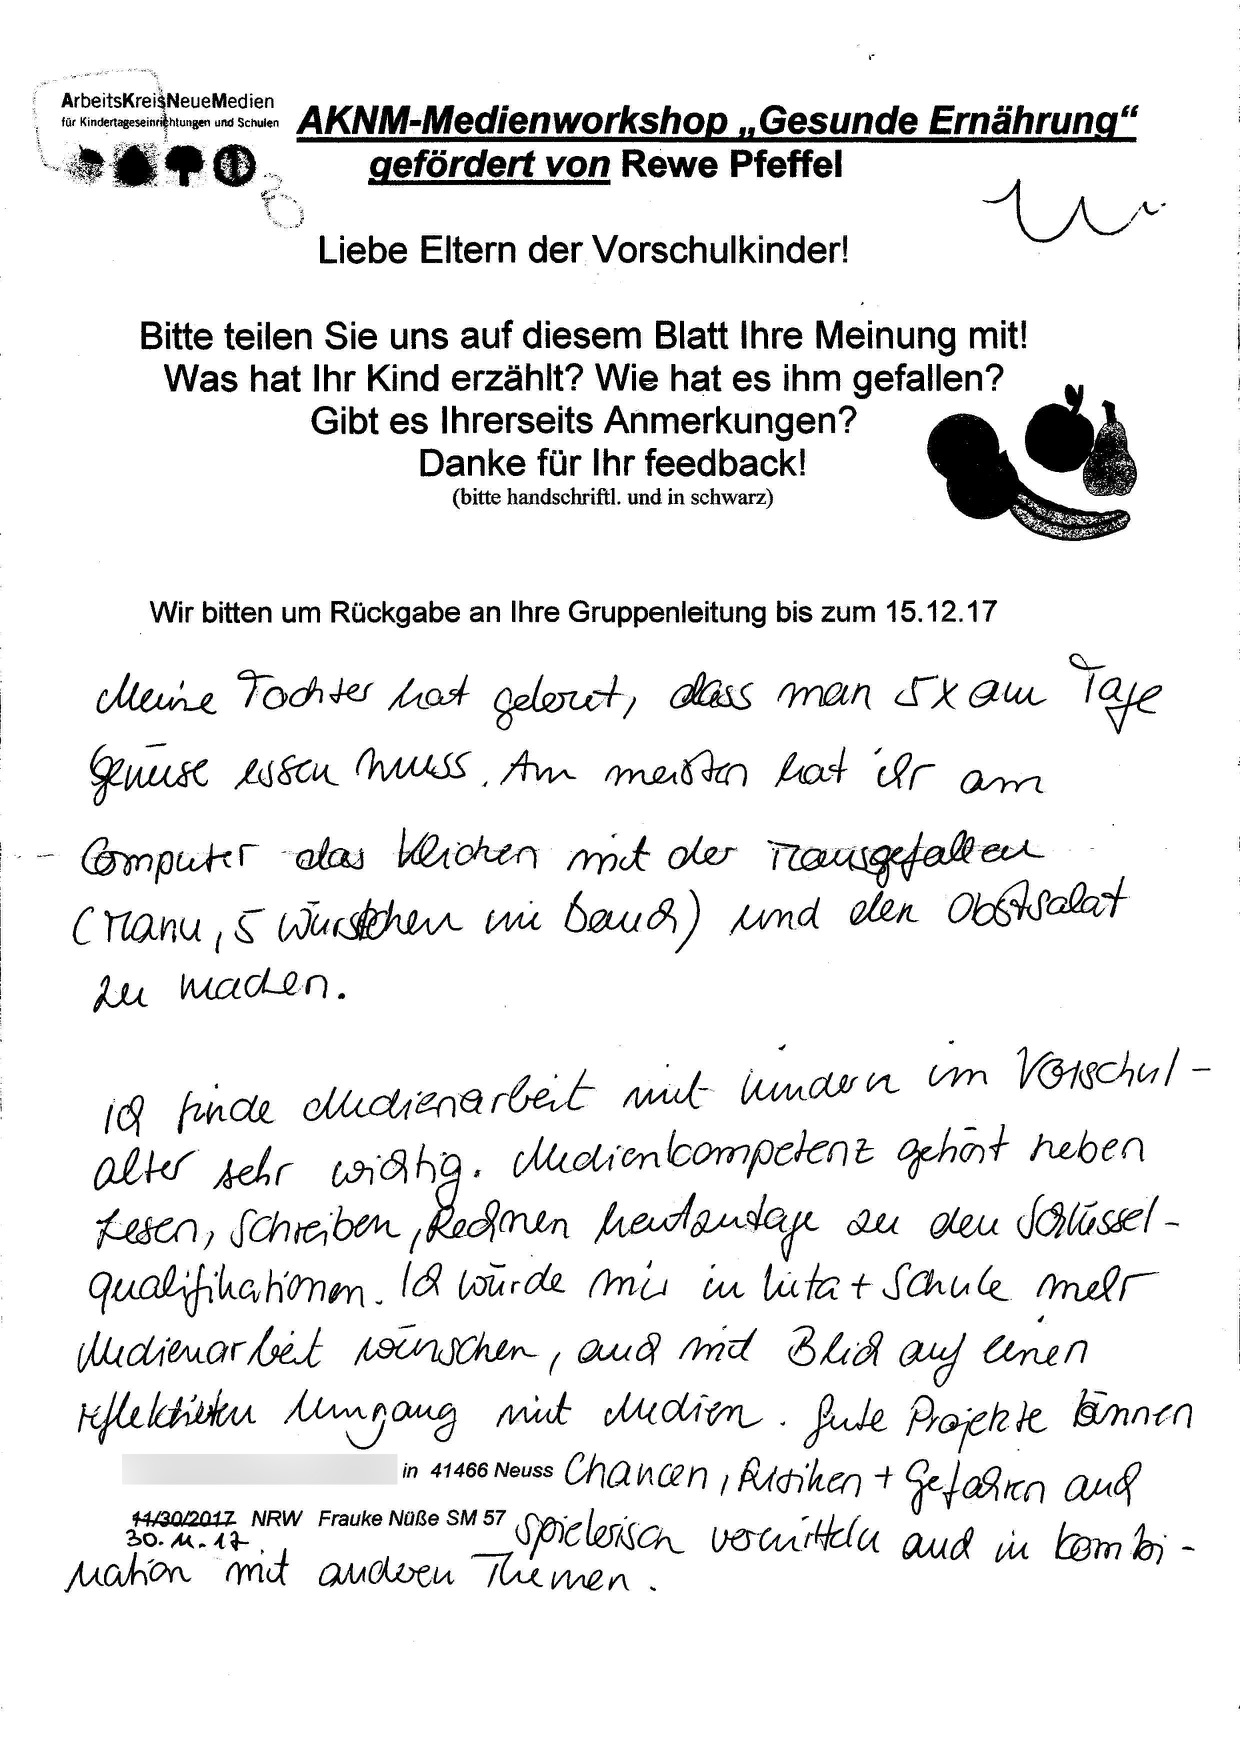 ArbeitsKreisNeueMedien
für Kindertageseinrichtungen und Schulen
AKNM-Medienworkshop „Gesunde Ernährung“
gefördert von Rewe Pfeffel
Liebe Eltern der Vorschulkinder!
Bitte teilen Sie uns auf diesem Blatt Ihre Meinung mit!
Was hat Ihr Kind erzählt? Wie hat es ihm gefallen?
Gibt es Ihrerseits Anmerkungen?
Danke für Ihr feedback!
(bitte handschriftl. und in schwarz)
Wir bitten um Rückgabe an Ihre Gruppenleitung bis zum 15.12.17
Meine Tochter hat gelernt, dass man 5x am Tage
Gemüse essen muss. Am meisten hat ihr am
Computer das Klicken mit der Maus gefallen
(Manu, 5 Würstchen im Bauch) und den Obstsalat
zu machen.
Ich finde Medienarbeit mit Kindern im Vorschul-
alter sehr wichtig. Medienkompetenz gehört neben
Lesen, Schreiben, Rechnen heutzutage zu den Schlüssel-
qualifikationen. Ich würde mir in Kita + Schule mehr
Medienarbeit wünschen, auch mit Blick auf einen
reflektierten Umgang mit Medien. Gute Projekte können
in 41466 Neuss Chancen, Risiken + Gefahren auch
11/30/2017 NRW Frauke Nüße SM 57 spielerisch vermitteln auch in Kombi-
30.11.17
nation mit anderen Themen.